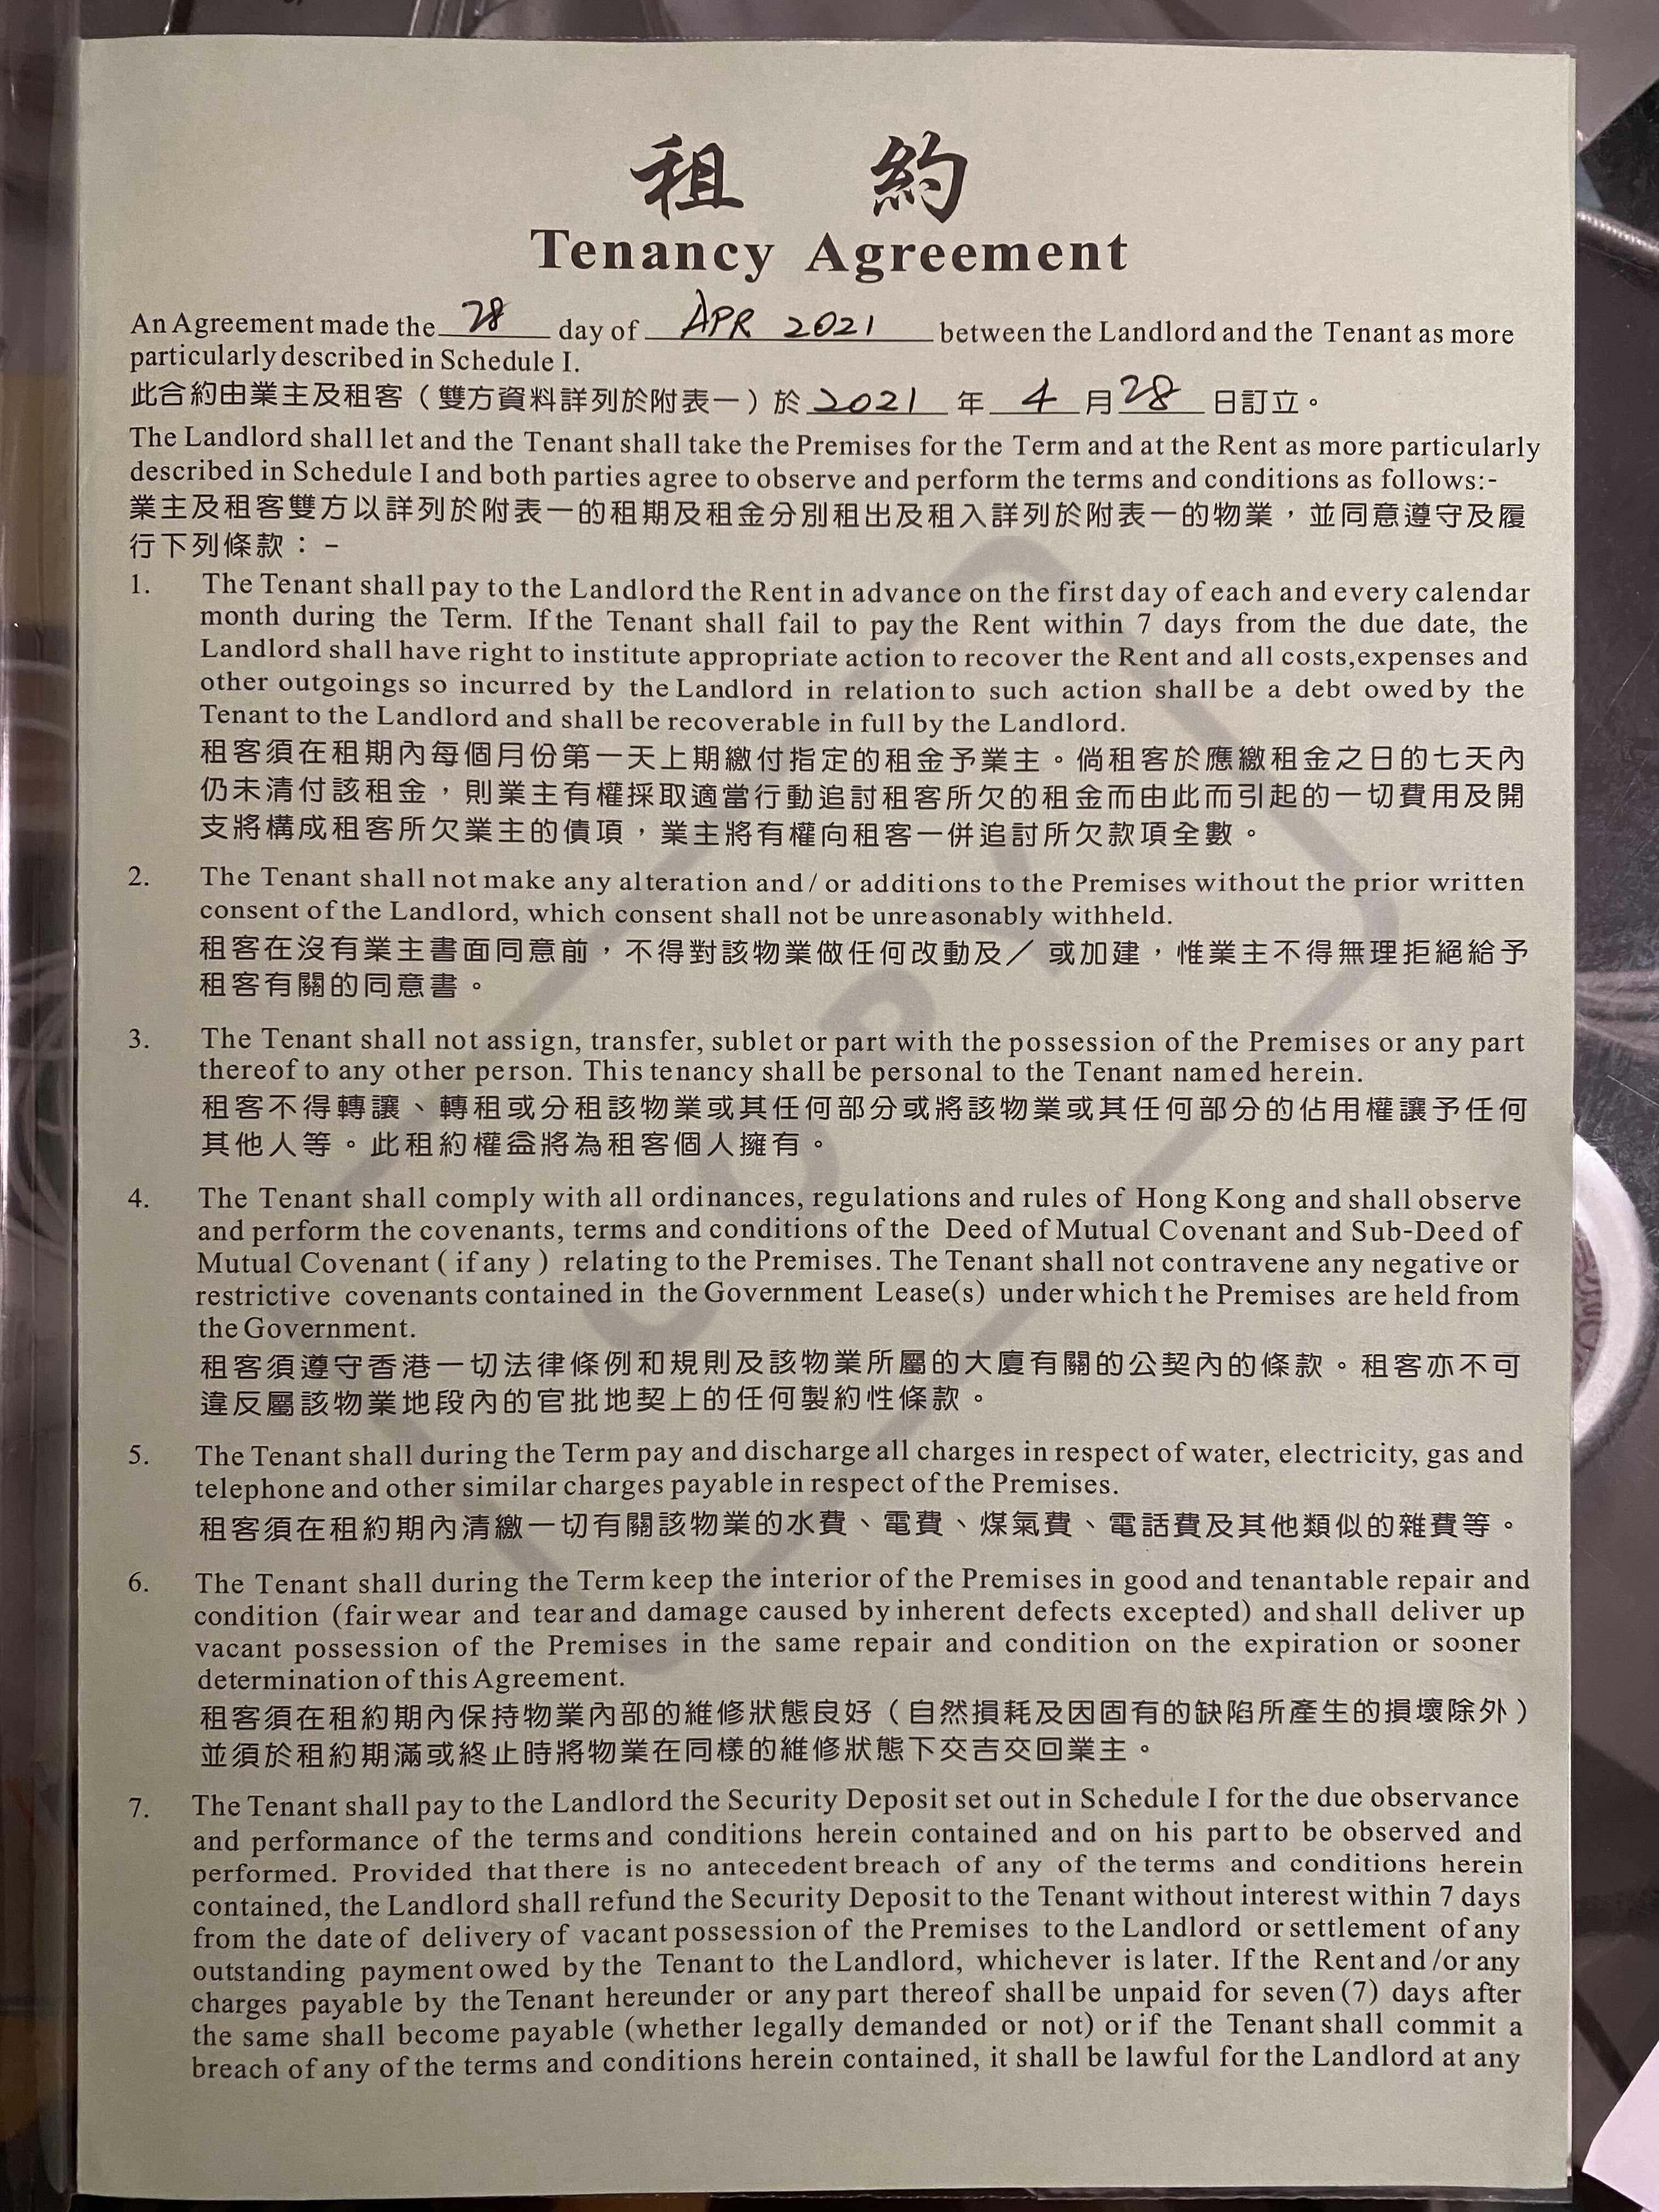 租 約
Tenancy Agreement
An Agreement made the 28 day of APR 2021 between the Landlord and the Tenant as more
particularly described in Schedule I.
此合約由業主及租客（雙方資料詳列於附表一）於 2021 年 4 月 28 日訂立。
The Landlord shall let and the Tenant shall take the Premises for the Term and at the Rent as more particularly
described in Schedule I and both parties agree to observe and perform the terms and conditions as follows:-
業主及租客雙方以詳列於附表一的租期及租金分別租出及租入詳列於附表一的物業，並同意遵守及履
行下列條款：–
1. The Tenant shall pay to the Landlord the Rent in advance on the first day of each and every calendar
month during the Term. If the Tenant shall fail to pay the Rent within 7 days from the due date, the
Landlord shall have right to institute appropriate action to recover the Rent and all costs,expenses and
other outgoings so incurred by the Landlord in relation to such action shall be a debt owed by the
Tenant to the Landlord and shall be recoverable in full by the Landlord.
租客須在租期內每個月份第一天上期繳付指定的租金予業主。倘租客於應繳租金之日的七天內
仍未清付該租金，則業主有權採取適當行動追討租客所欠的租金而由此而引起的一切費用及開
支將構成租客所欠業主的債項，業主將有權向租客一併追討所欠款項全數。
2. The Tenant shall not make any alteration and / or additions to the Premises without the prior written
consent of the Landlord, which consent shall not be unreasonably withheld.
租客在沒有業主書面同意前，不得對該物業做任何改動及／或加建，惟業主不得無理拒絕給予
租客有關的同意書。
3. The Tenant shall not assign, transfer, sublet or part with the possession of the Premises or any part
thereof to any other person. This tenancy shall be personal to the Tenant named herein.
租客不得轉讓、轉租或分租該物業或其任何部分或將該物業或其任何部分的佔用權讓予任何
其他人等。此租約權益將為租客個人擁有。
4. The Tenant shall comply with all ordinances, regulations and rules of Hong Kong and shall observe
and perform the covenants, terms and conditions of the Deed of Mutual Covenant and Sub-Deed of
Mutual Covenant ( if any ) relating to the Premises. The Tenant shall not contravene any negative or
restrictive covenants contained in the Government Lease(s) under which the Premises are held from
the Government.
租客須遵守香港一切法律條例和規則及該物業所屬的大廈有關的公契內的條款。租客亦不可
違反屬該物業地段內的官批地契上的任何製約性條款。
5. The Tenant shall during the Term pay and discharge all charges in respect of water, electricity, gas and
telephone and other similar charges payable in respect of the Premises.
租客須在租約期內清繳一切有關該物業的水費、電費、煤氣費、電話費及其他類似的雜費等。
6. The Tenant shall during the Term keep the interior of the Premises in good and tenantable repair and
condition (fair wear and tear and damage caused by inherent defects excepted) and shall deliver up
vacant possession of the Premises in the same repair and condition on the expiration or sooner
determination of this Agreement.
租客須在租約期內保持物業內部的維修狀態良好（自然損耗及因固有的缺陷所產生的損壞除外）
並須於租約期滿或終止時將物業在同樣的維修狀態下交吉交回業主。
7. The Tenant shall pay to the Landlord the Security Deposit set out in Schedule I for the due observance
and performance of the terms and conditions herein contained and on his part to be observed and
performed. Provided that there is no antecedent breach of any of the terms and conditions herein
contained, the Landlord shall refund the Security Deposit to the Tenant without interest within 7 days
from the date of delivery of vacant possession of the Premises to the Landlord or settlement of any
outstanding payment owed by the Tenant to the Landlord, whichever is later. If the Rent and /or any
charges payable by the Tenant hereunder or any part thereof shall be unpaid for seven (7) days after
the same shall become payable (whether legally demanded or not) or if the Tenant shall commit a
breach of any of the terms and conditions herein contained, it shall be lawful for the Landlord at any
COPY